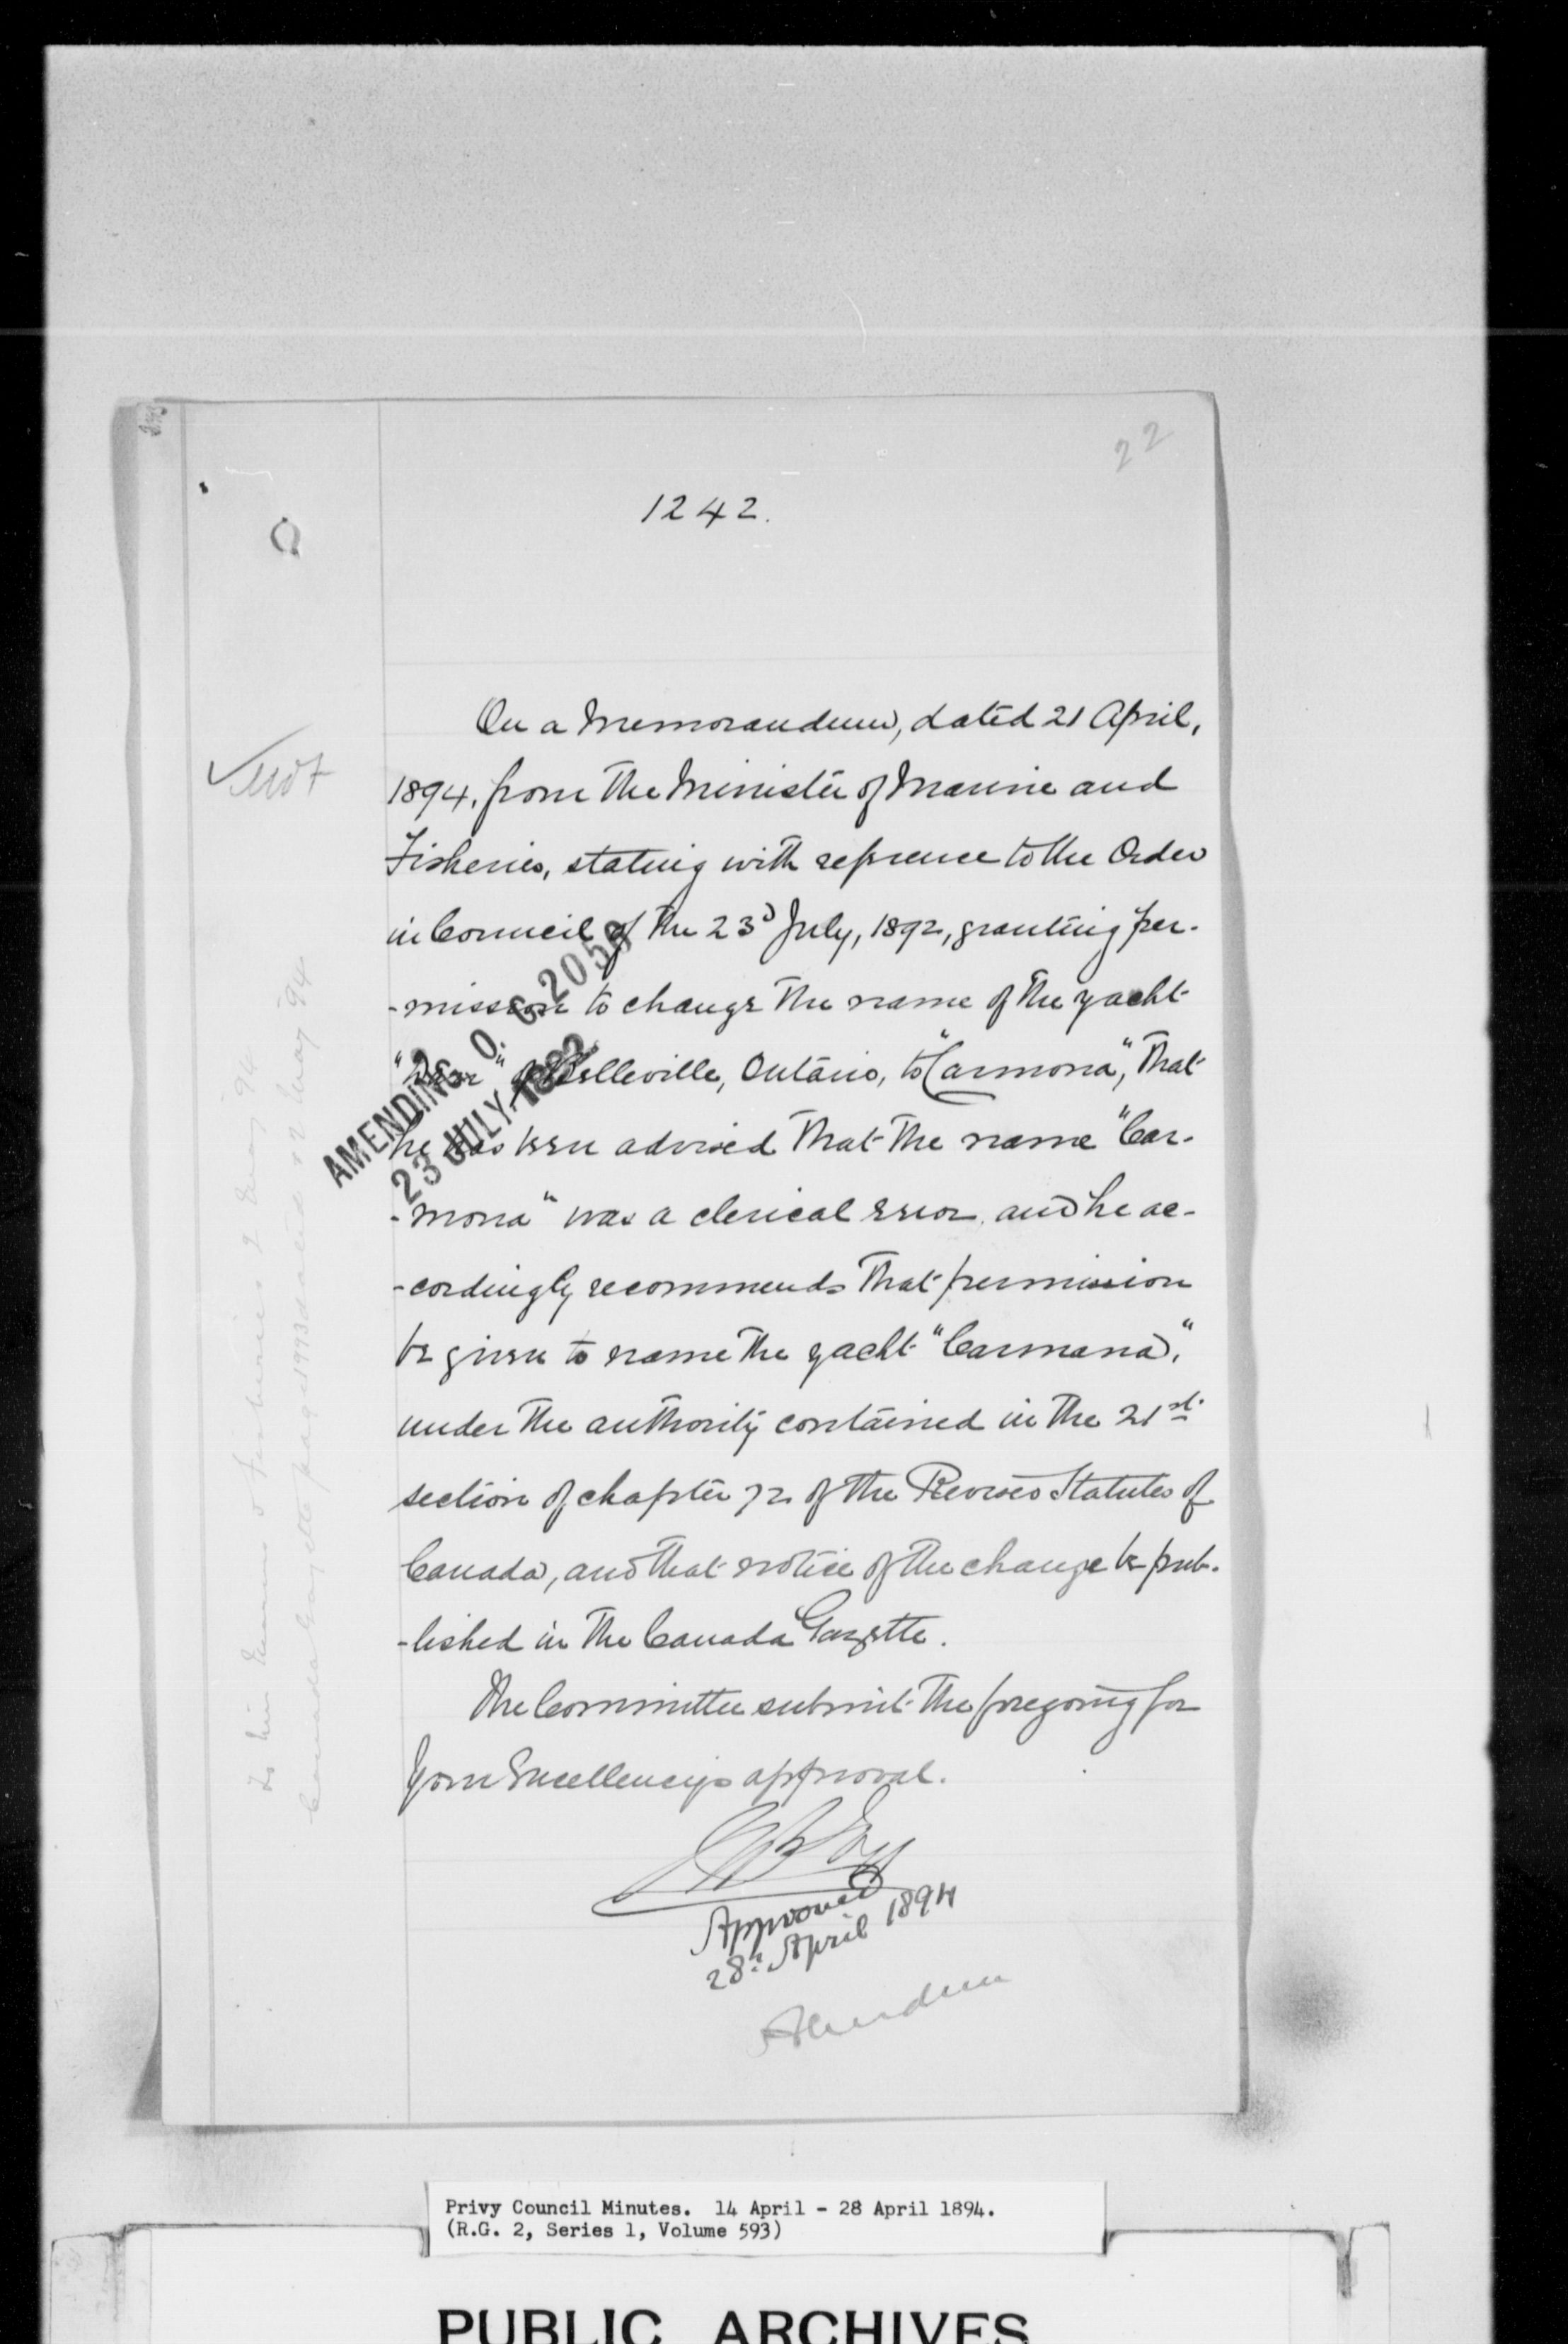 22
1242.
On a Memorandum, dated 21 April,
1894, from the Minister of Marine and
Fisheries, stating with reference to the Order
in Council of the 23d July, 1892, granting per-
-mission to change the name of the yacht
of Belleville, Ontario, to "Carmona", that
he has been advised that the name "Car-
-mona" was a clerical error, and he ac-
-cordingly recommends that permission
be given to name the yacht "Carmana",
under the authority contained in the 21st
section of chapter 72 of the Revised Statutes of
Canada, and that notice of the change be pub-
-lished in the Canada Gazette.
The Committee submit the foregoing for
Your Excellency's approval.
Approved
28th April 1894
Aberdeen
AMENDING O. C. 2059
23 JULY. 1892
Privy Council Minutes. 14 April - 28 April 1894.
(R.G. 2, Series 1, Volume 593)
PUBLIC ARCHIVES